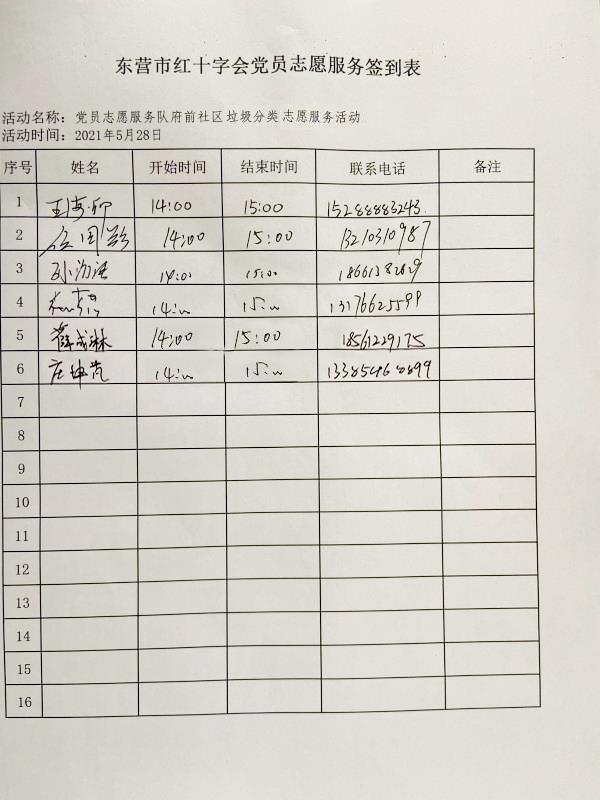 东营市红十字会党员志愿服务签到表
活动名称：党员志愿服务队府前社区垃圾分类志愿服务活动
活动时间：2021年5月28日
序号 姓名 开始时间 结束时间 联系电话 备注
1 14:00 15:00 15288883243
2 任国 14:00 15:00 13210310987
3 14:00 15:00
4 14:00 15:00 13176625599
5 薛成林 14:00 15:00 18561229175
6 庄坤 14:00 15:00 13385468899
7
8
9
10
11
12
13
14
15
16